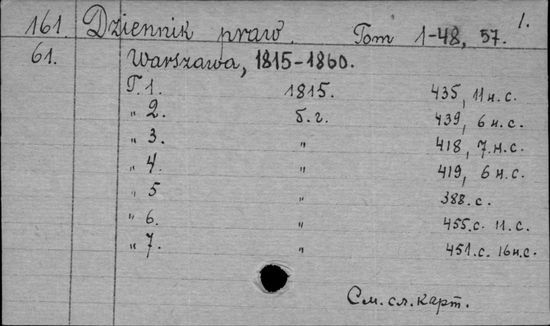 161. Dziennik praw. Tom 1-48, 57. 1.
61. Warszawa, 1815-1860.
Т. 1. 1815. 435, 11 н.с.
„ 2. б.г. 439, 6 н.с.
„ 3. „ 418, 7 н.с.
„ 4. „ 419, 6 н.с.
„ 5 „ 388.с.
„ 6. „ 455.с. 11.с.
„ 7. „ 451.с. 16н.с.
См. сл. карт.